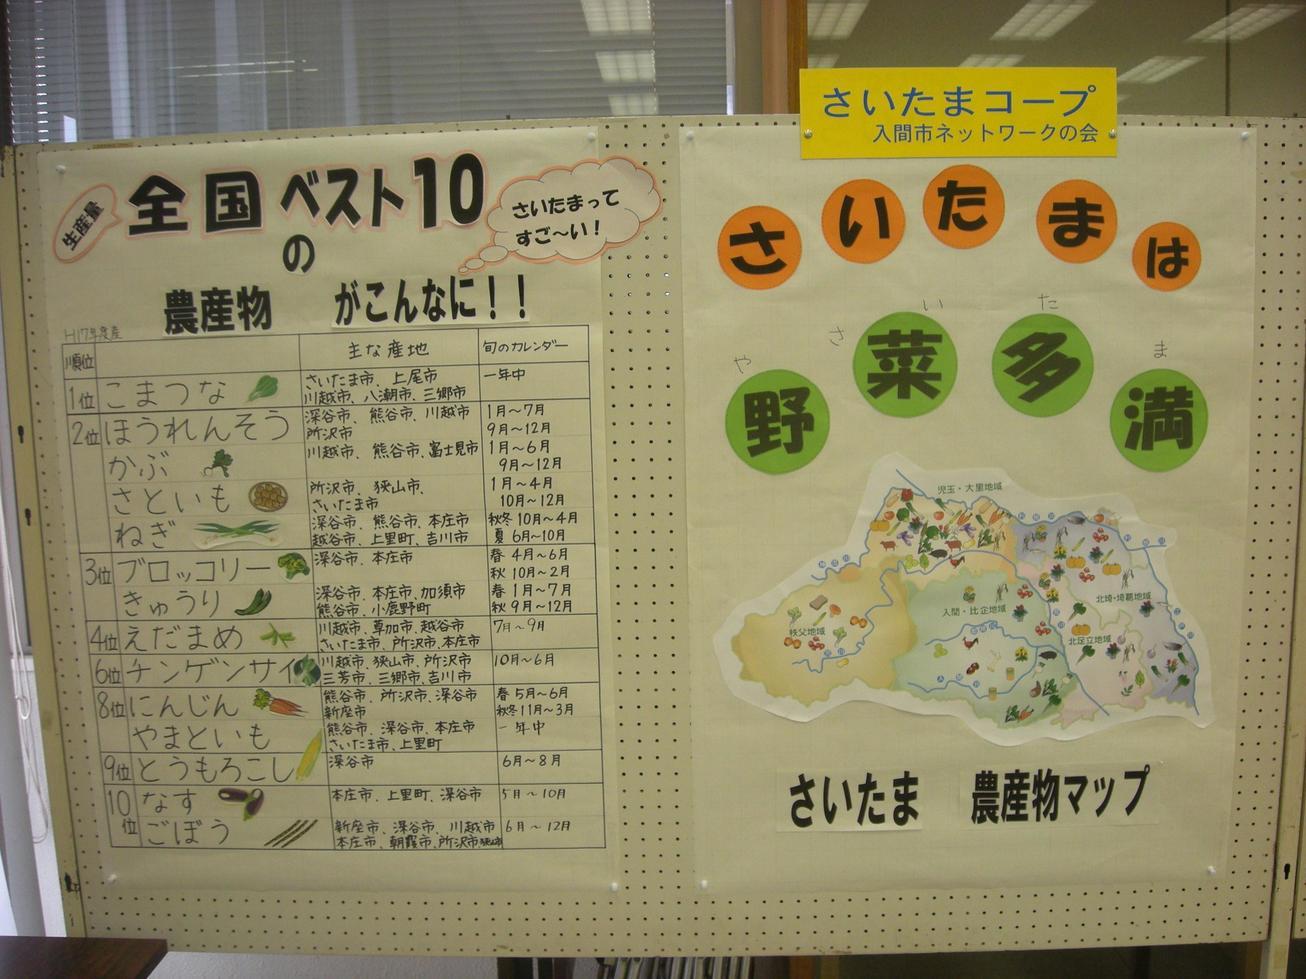 生産量
全国ベスト10
さいたまって
すご～い！
の
農産物 がこんなに！！
H17年度産
順位 主な産地 旬のカレンダー
1位 こまつな さいたま市、上尾市 一年中
川越市、八潮市、三郷市
2位 ほうれんそう 深谷市、熊谷市、川越市 1月～7月
所沢市 9月～12月
かぶ 川越市、熊谷市、富士見市 1月～6月
9月～12月
さといも 所沢市、狭山市、 1月～4月
さいたま市 10月～12月
ねぎ 深谷市、熊谷市、本庄市 秋冬 10月～4月
越谷市、上里町、吉川市 夏 6月～10月
3位 ブロッコリー 深谷市、本庄市 春 4月～6月
秋 10月～2月
きゅうり 深谷市、本庄市、加須市 春 1月～7月
熊谷市、小鹿野町 秋 9月～12月
4位 えだまめ 川越市、草加市、越谷市 7月～9月
さいたま市、所沢市、本庄市
6位 チンゲンサイ 川越市、狭山市、所沢市 10月～6月
三芳市、三郷市、吉川市
8位 にんじん 熊谷市、所沢市、深谷市 春 5月～6月
新座市 秋冬 11月～3月
やまといも 熊谷市、深谷市、本庄市 一年中
さいたま市、上里町
9位 とうもろこし 深谷市 6月～8月
10位 なす 本庄市、上里町、深谷市 5月～10月
ごぼう 新座市、深谷市、川越市 6月～12月
本庄市、朝霞市、所沢市 狭山市
さいたまコープ
入間市ネットワークの会
さいたまは
や さ い た ま
野菜多満
児玉・大里地域
北埼・埼葛地域
入間・比企地域
秩父地域
北足立地域
さいたま 農産物マップ